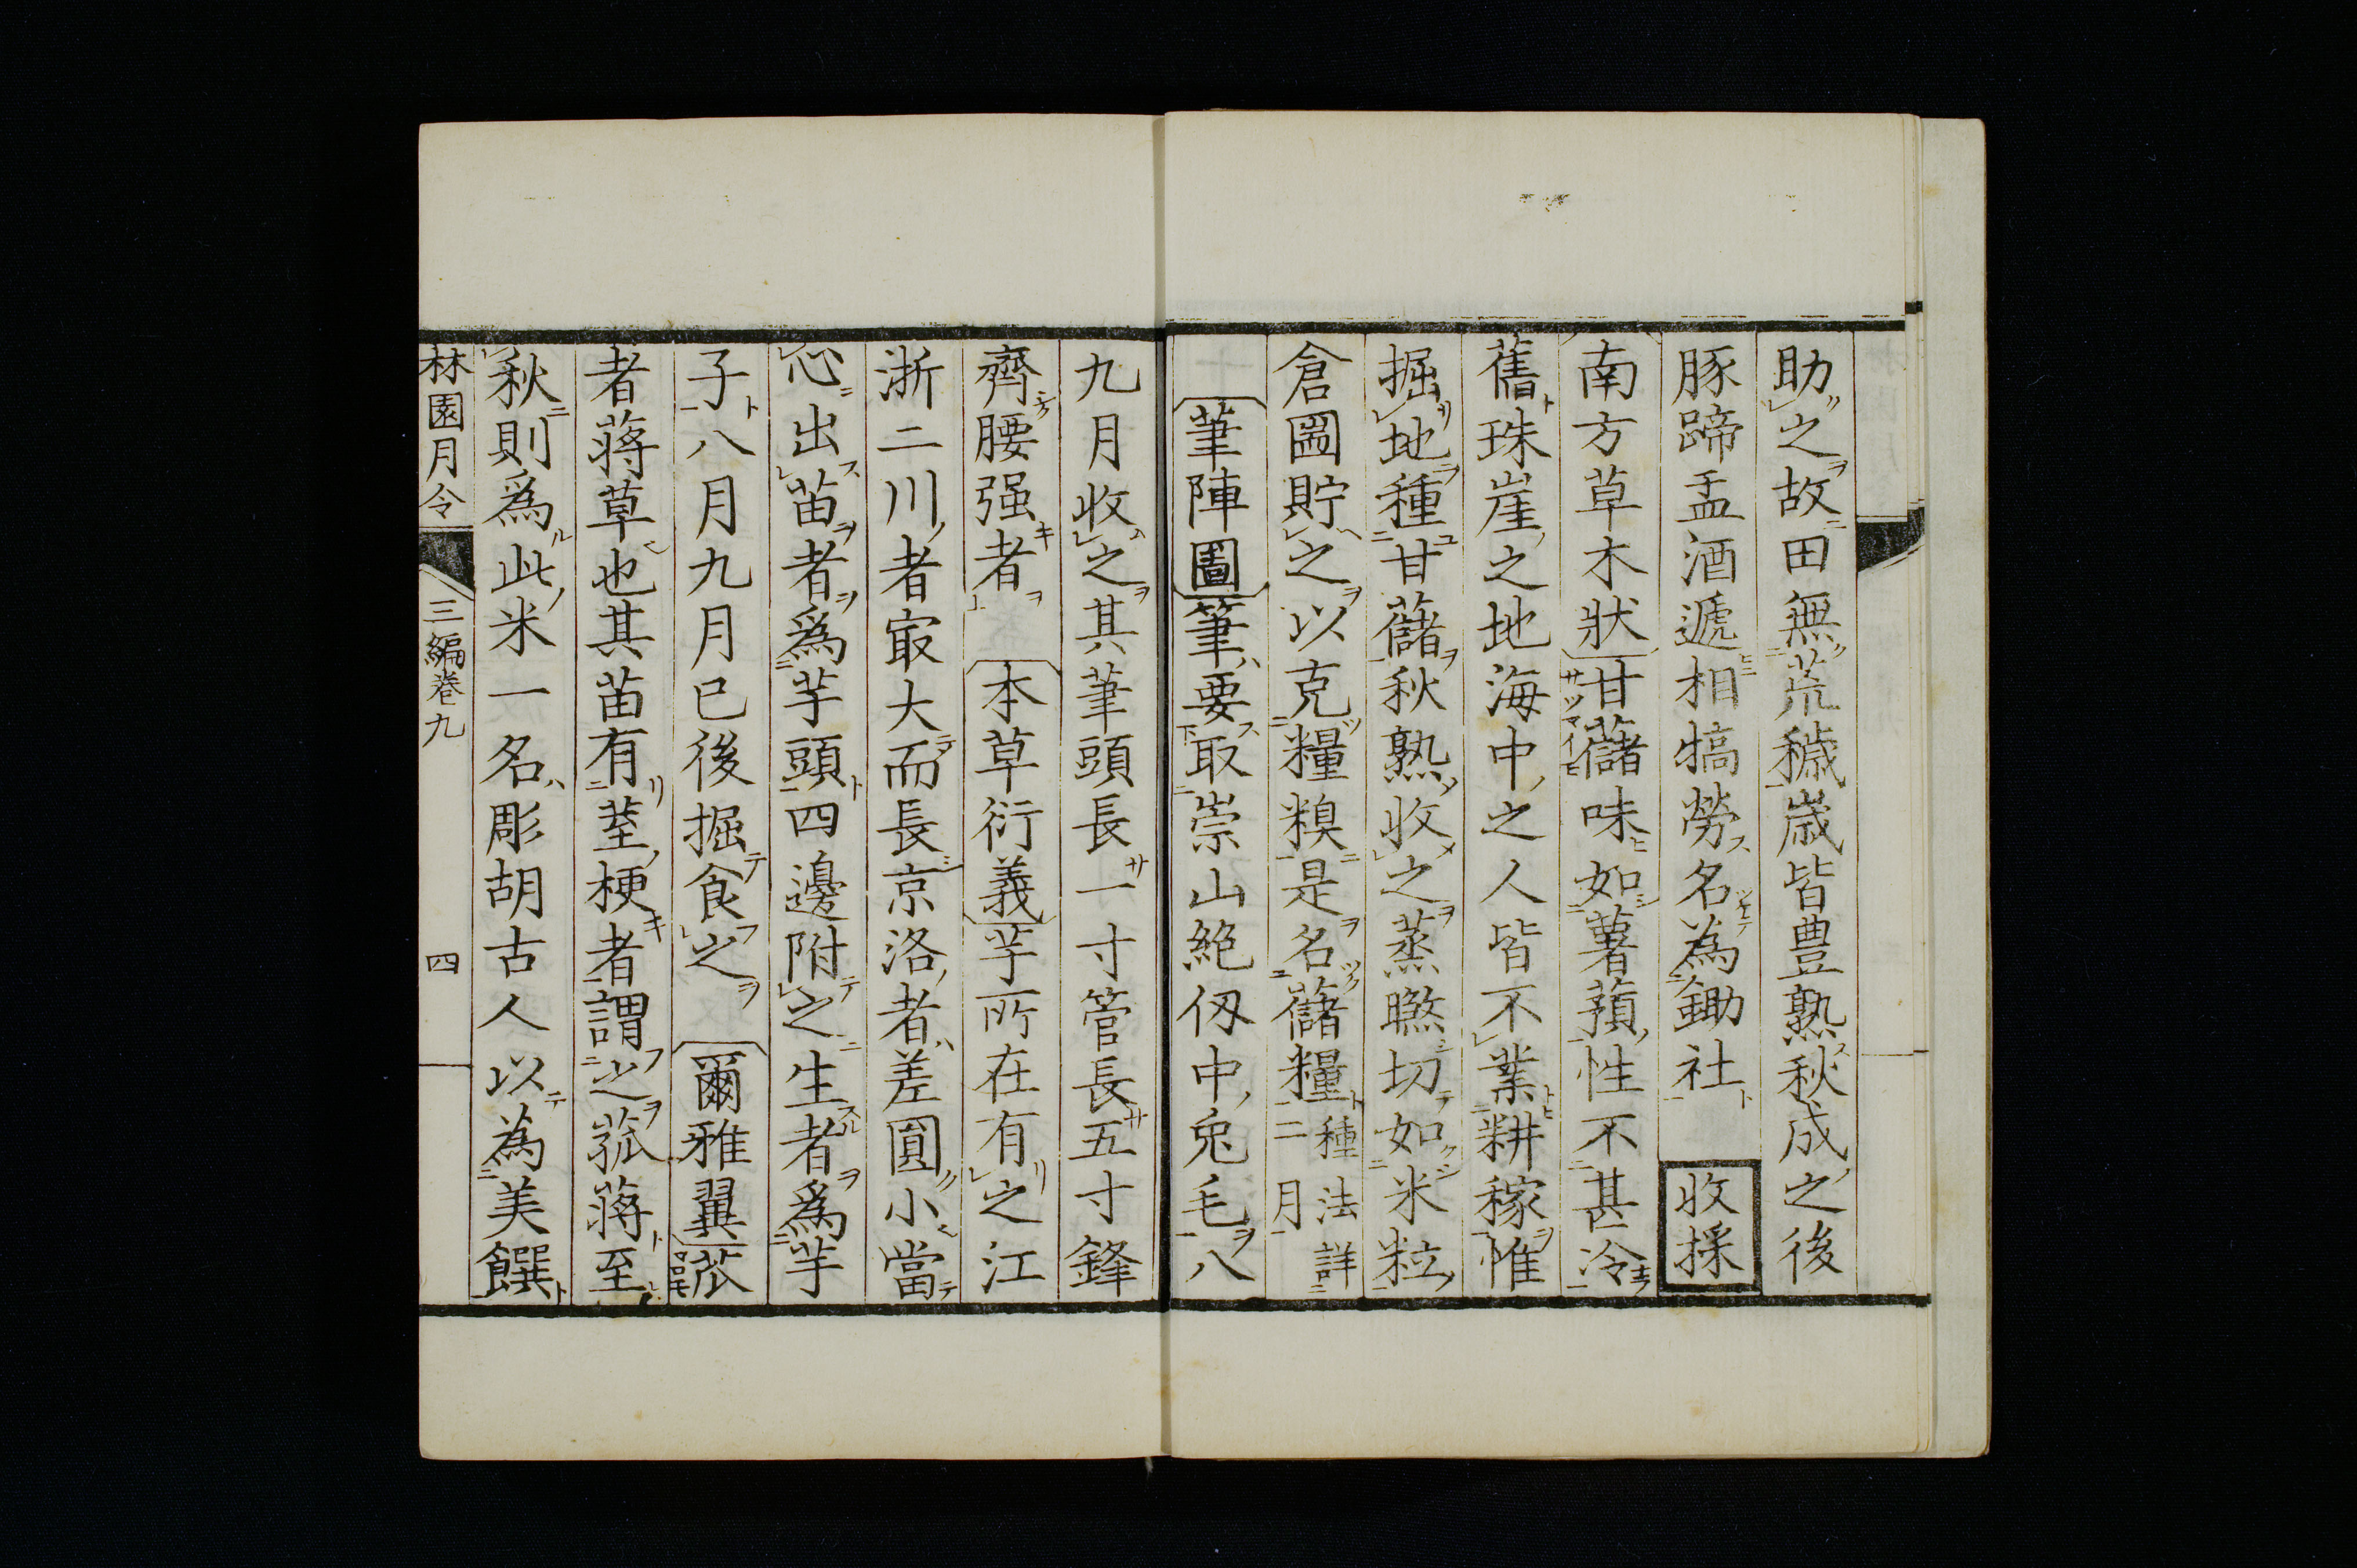 助之故田無荒穢歳皆豊熟秋成之後
豚蹄盂酒遞相犒勞名為鋤社 收採
南方草木狀甘藷味如薯蕷性不甚冷
舊珠崖之地海中之人皆不業耕稼惟
掘地種甘藷秋熟收之蒸曬切如米粒
倉圌貯之以充糧糗是名藷糧種法詳二月
筆陣圖筆要取崇山絶仭中兎毛八
九月收之其筆頭長一寸管長五寸鋒
齊腰强者 本草衍義芋所在有之江
浙二川者㝡大而長京洛者差圓小當
心出苗者爲芋頭四邊附之生者爲芋
子八月九月已後掘食之 爾雅翼苽
者蔣草也其苗有莖梗者謂之菰蔣至
秋則爲此米一名彫胡古人以為美饌
林園月令 三編卷九 四